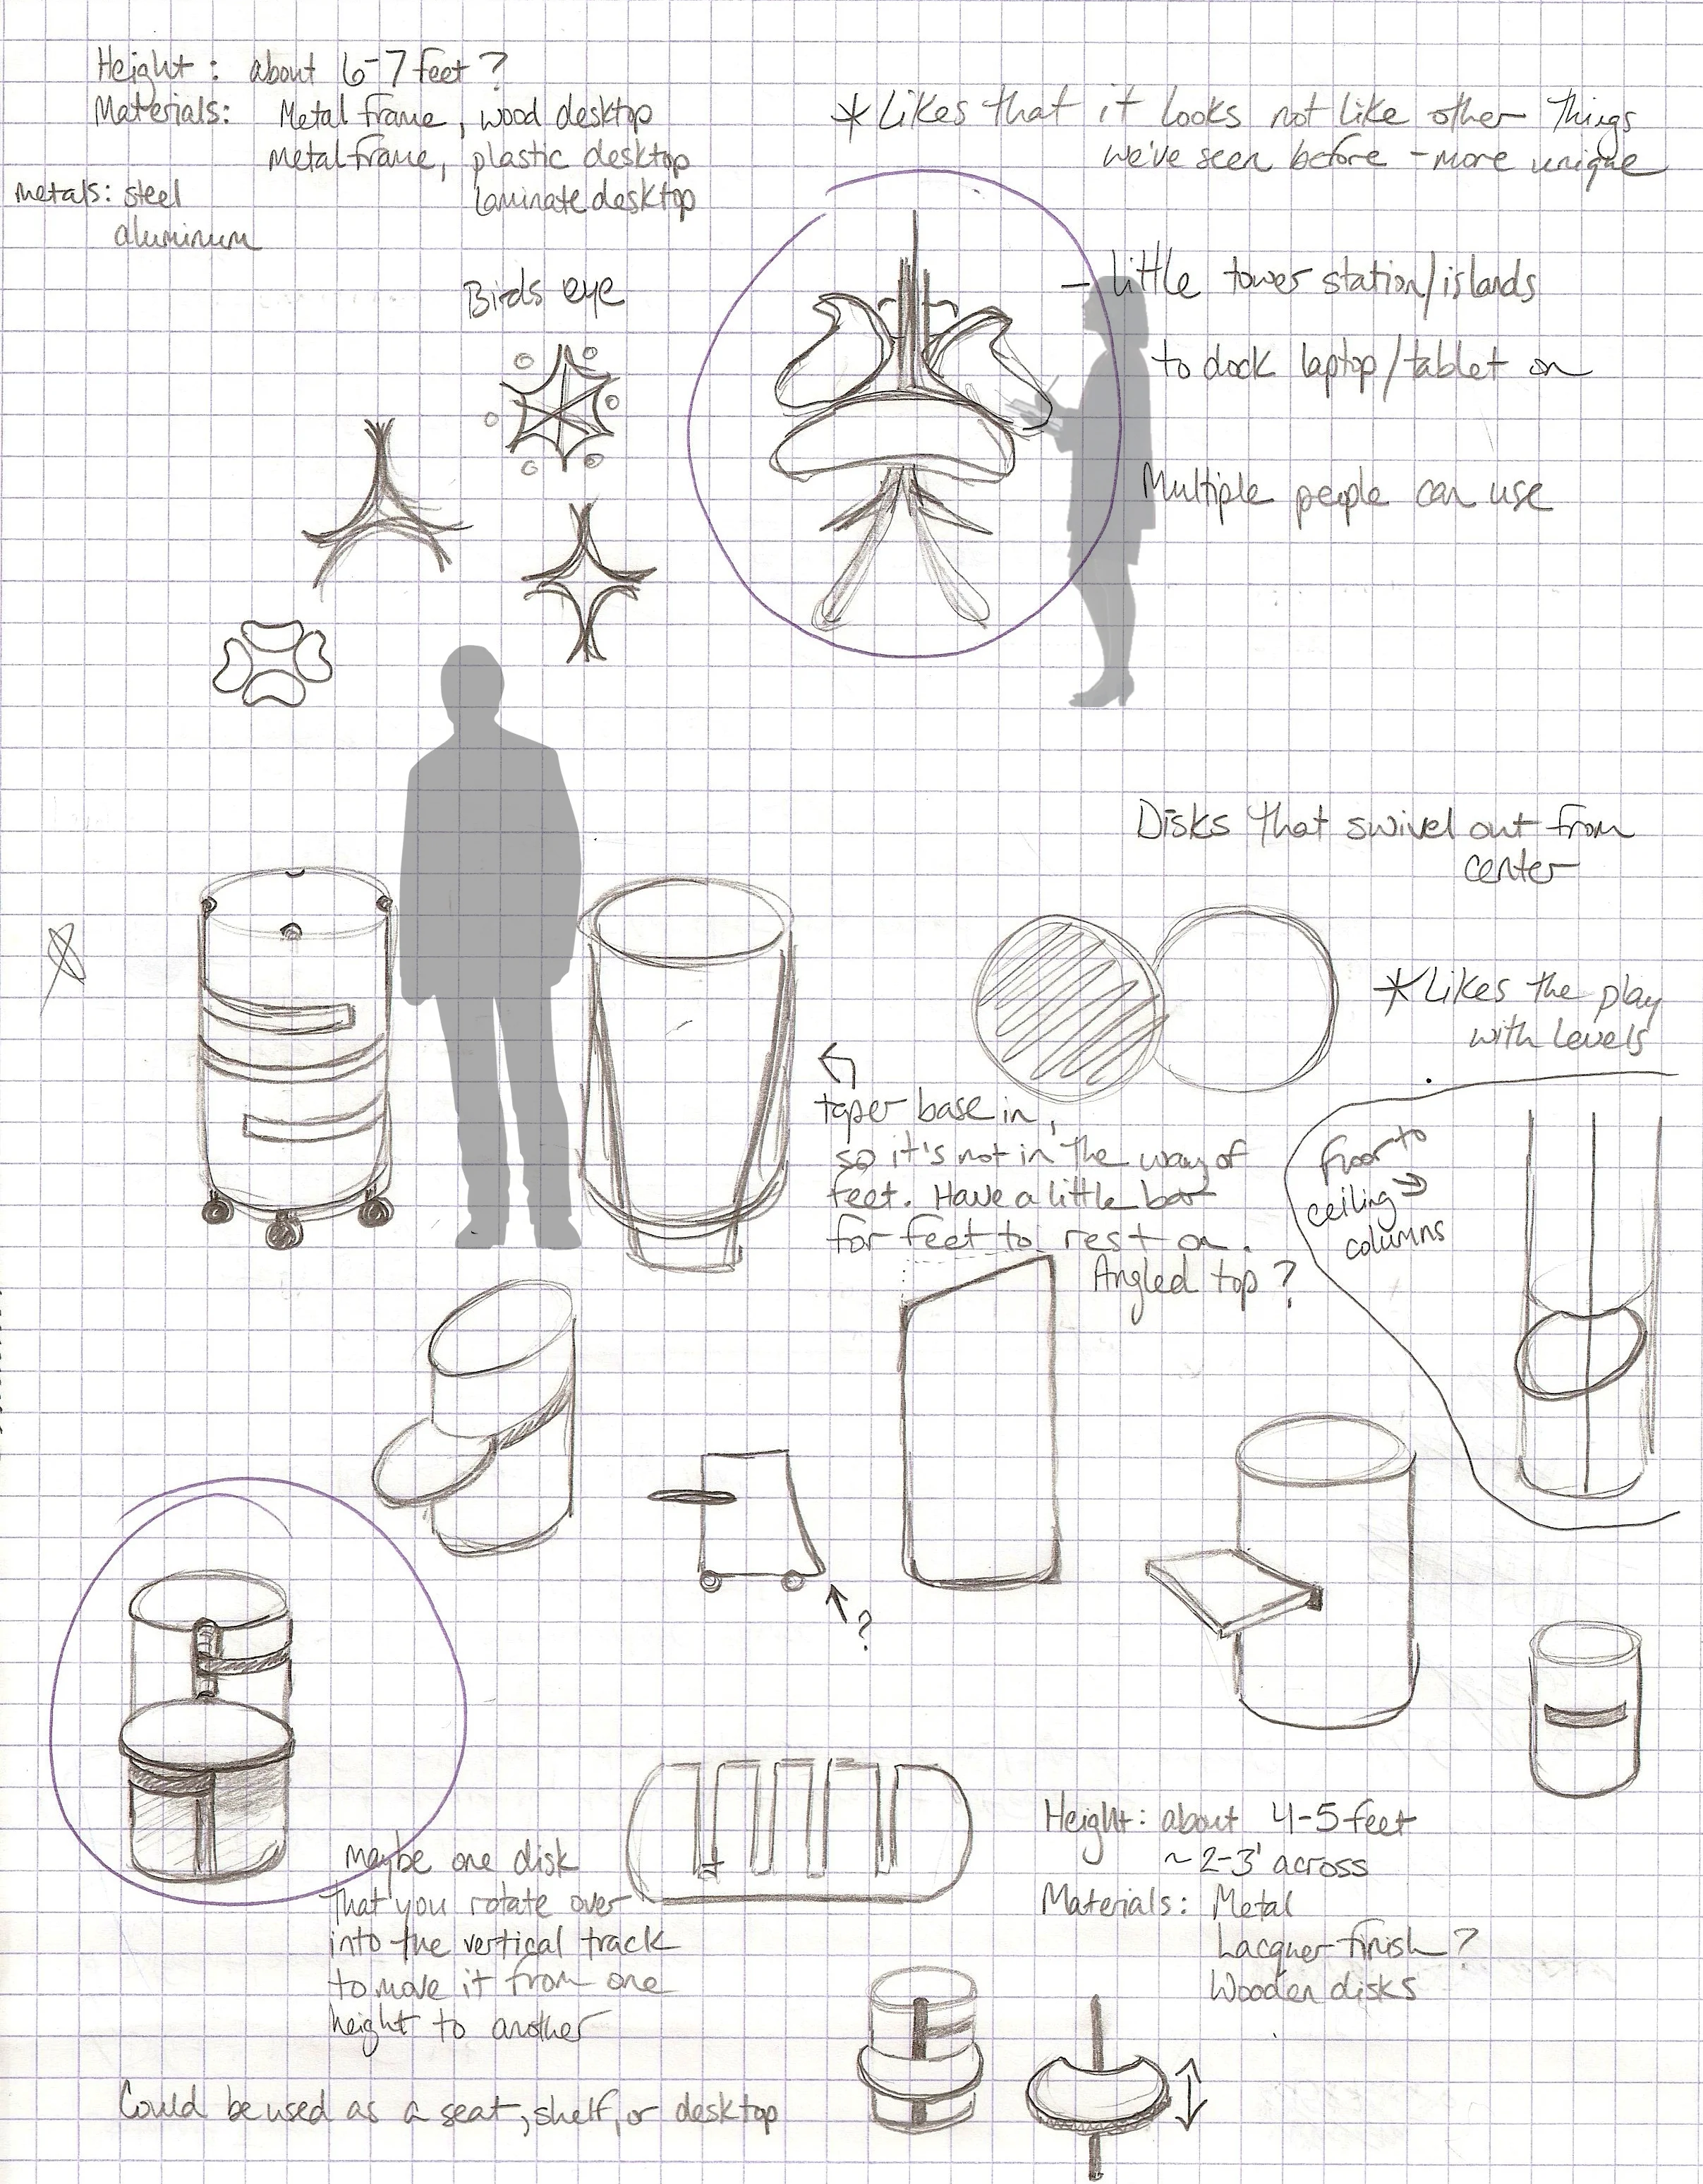 Height: about 6-7 feet?
Materials: Metal frame, wood desktop
metal frame, plastic desktop
laminate desktop
Metals: steel
aluminum
*Likes that it looks not like other things
we've seen before - more unique
Birds eye
- little tower station/islands
to dock laptop/tablet on
Multiple people can use
Disks that swivel out from
center
*Likes the play
with levels
taper base in,
so it's not in the way of
feet. Have a little bar
for feet to rest on.
Angled top?
floor to
ceiling →
columns
?
maybe one disk
that you rotate over
into the vertical track
to move it from one
height to another
Height: about 4-5 feet
~ 2-3' across
Materials: Metal
Lacquer finish?
Wooden disks
Could be used as a seat, shelf, or desktop